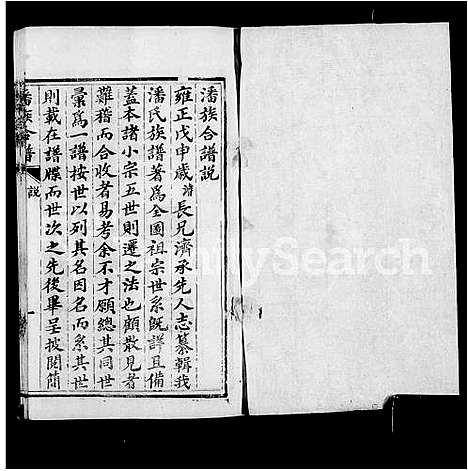 潘族合譜說
雍正戊申歲諸長兄濟承先人志纂輯我
潘氏族譜著爲全圖祖宗世系既詳且備
蓋本諸小宗五世則遷之法也顧散見者
難稽而合收者易考余不才願總其同世
彙爲一譜按世以列其名因名而系其世
則載在譜牒而世次之先後畢呈披閱簡
潘族合譜 說 一
FamilySearch